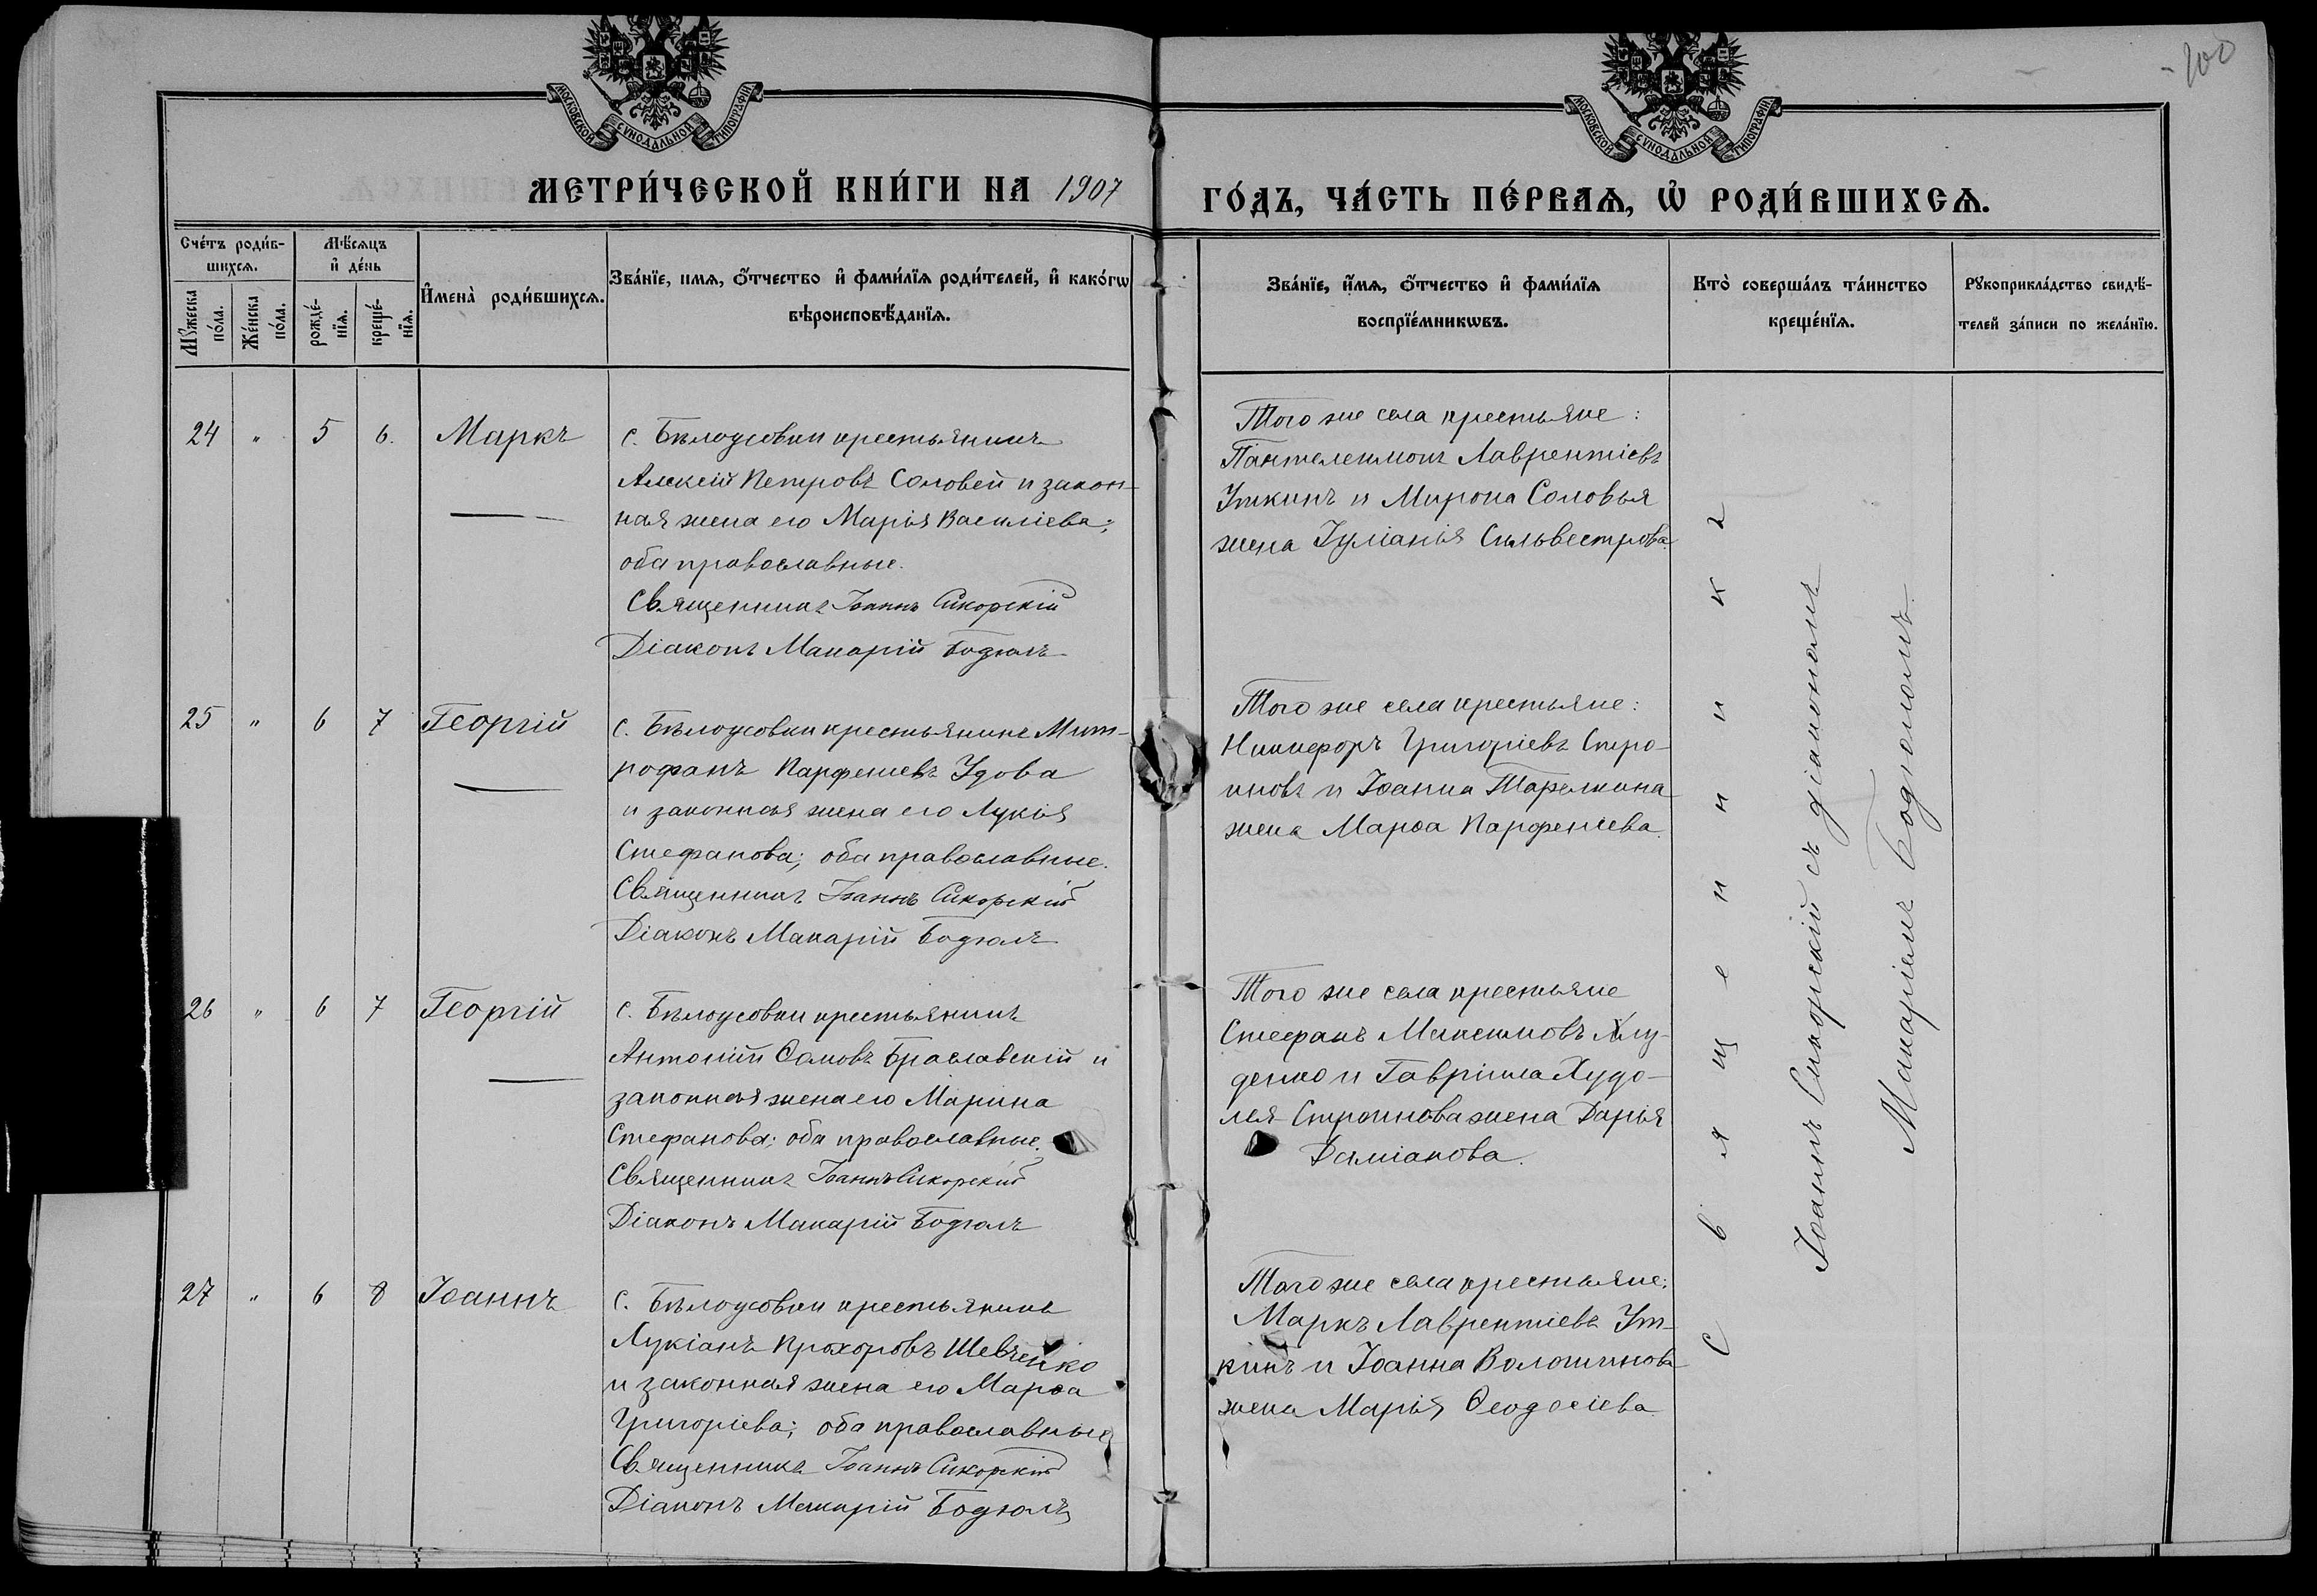 100
МОСКОВСКОЙ СѴНОДАЛЬНОЙ ТИПОГРАФІИ
МОСКОВСКОЙ СѴНОДАЛЬНОЙ ТИПОГРАФІИ
МЕТРИ́ЧЕСКОЙ КНИ́ГИ НА 1907
ГО́ДЪ, ЧА́СТЬ ПЕ́РВАѦ, Ѡ҆ РОДИ́ВШИХСѦ.
Сче́тъ роди́в-
шихсѧ.
Мꙋ́жеска
по́ла.
Же́нска
по́ла.
Мѣ́сѧцъ
и҆ де́нь
рожде́-
нїѧ.
креще́-
нїѧ.
И҆мена̀ роди́вшихсѧ.
Зва́нїе, имѧ, ѻ҆́тчество и҆ фами́лїѧ роди́телей, и҆ како́гѡ
вѣроисповѣ́данїѧ.
Зва́нїе, и҆́мѧ, ѻ҆́тчество и҆ фами́лїѧ
воспрїе́мникѡвъ.
Кто̀ соверша́лъ та́инство
креще́нїѧ.
Рꙋкоприкла́дство свидѣ́-
телей за́писи по жела́нїю.
24 " 5 6. Маркъ
с. Бѣлоусовки крестьянинъ
Алексій Петровъ Соловей и закон-
ная жена его Марія Василіева;
оба православные.
Священникъ Іоаннъ Сикорскій
Діаконъ Макарій Бодюлъ
Того же села крестьяне:
Пантелеимонъ Лаврентіевъ
Уткинъ и Мирона Соловья
жена Іуліанія Сильвестрова.
25 " 6 7 Георгій
с. Бѣлоусовки крестьянинъ Мит-
рофанъ Парфеніевъ Удова
и законная жена его Лукія
Стефанова; оба православные.
Священникъ Іоаннъ Сикорскій
Діаконъ Макарій Бодюлъ
Того же села крестьяне:
Никифоръ Григоріевъ Строи-
новъ и Іоанна Тарелкина
жена Марѳа Парфеніева.
26 " 6 7 Георгій
с. Бѣлоусовки крестьянинъ
Антоній Ѳомовъ Браславскій и
законная жена его Марина
Стефанова; оба православные.
Священникъ Іоаннъ Сикорскій
Діаконъ Макарій Бодюлъ
Того же села крестьяне
Стефанъ Максимовъ
и Гавріила Худо-
лея-Строинова жена Дарія
Даміанова.
27 " 6 8 Іоаннъ
с. Бѣлоусовки крестьянинъ
Лукіанъ Прохоровъ Шевченко
и законная жена его Марѳа
Григоріева; оба православные
Священникъ Іоаннъ Сикорскій
Діаконъ Макарій Бодюлъ
Того же села крестьяне:
Маркъ Лаврентіевъ Ут-
кинъ и Іоанна Волошинова
жена Марія Ѳеодосіева
Священникъ
Іоаннъ Сикорскій съ діакономъ
Макаріемъ Бодюломъ.